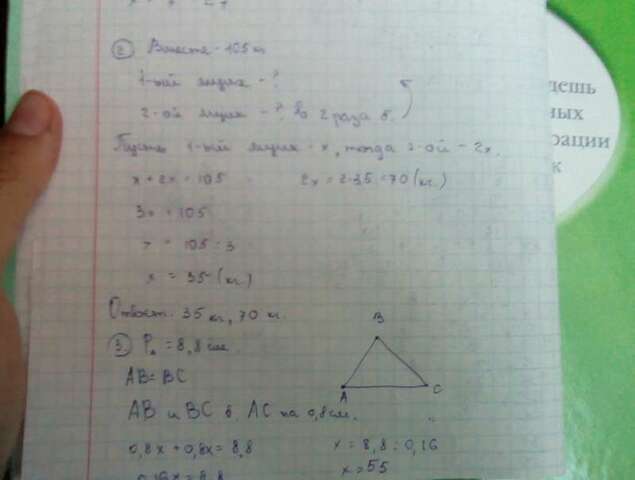 ② Вместе - 105 кг
1-ый ящик - ?
2-ой ящик - ? во 2 раза б.
Пусть 1-ый ящик - x, тогда 2-ой - 2x.
x + 2x = 105
2x = 2·35 = 70 (кг.)
3x = 105
x = 105 : 3
x = 35 (кг.)
Ответ: 35 кг, 70 кг.
③ P = 8,8 см.
B
AB = BC
A
C
AB и BC б. AC на 0,8 см.
0,8x + 0,8x = 8,8
x = 8,8 : 0,16
0,16x = 8,8
x = 55
дешь
ных
рации
к